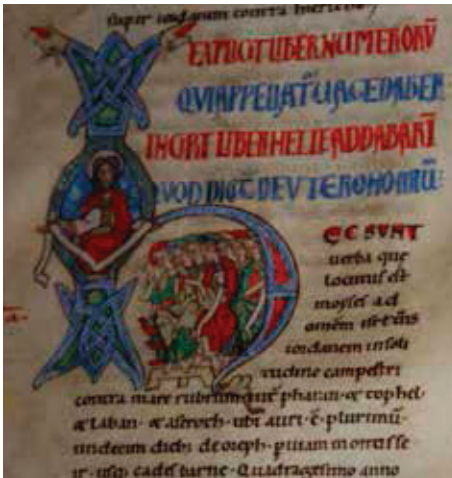 super iordanem contra iericho
EXPLICIT LIBER NUMERORŪ
QVI APPELLATUR VAGEDABER
INCIPT LIBER HELLE ADDABARĪ
QVOD DICIT DEVTERONOMIŪ:
EC SVNT
uerba que
locutus est
moyses ad
omēm
iordanem in soli
tudine campestri
contra mare rubrum pharan & tophel·
& laban· & aseroth· ubi auri· ē· plurimū·
undecim dieb; de oreb· p uiam montis se
ir· usq; cades barne· Quadragesimo anno